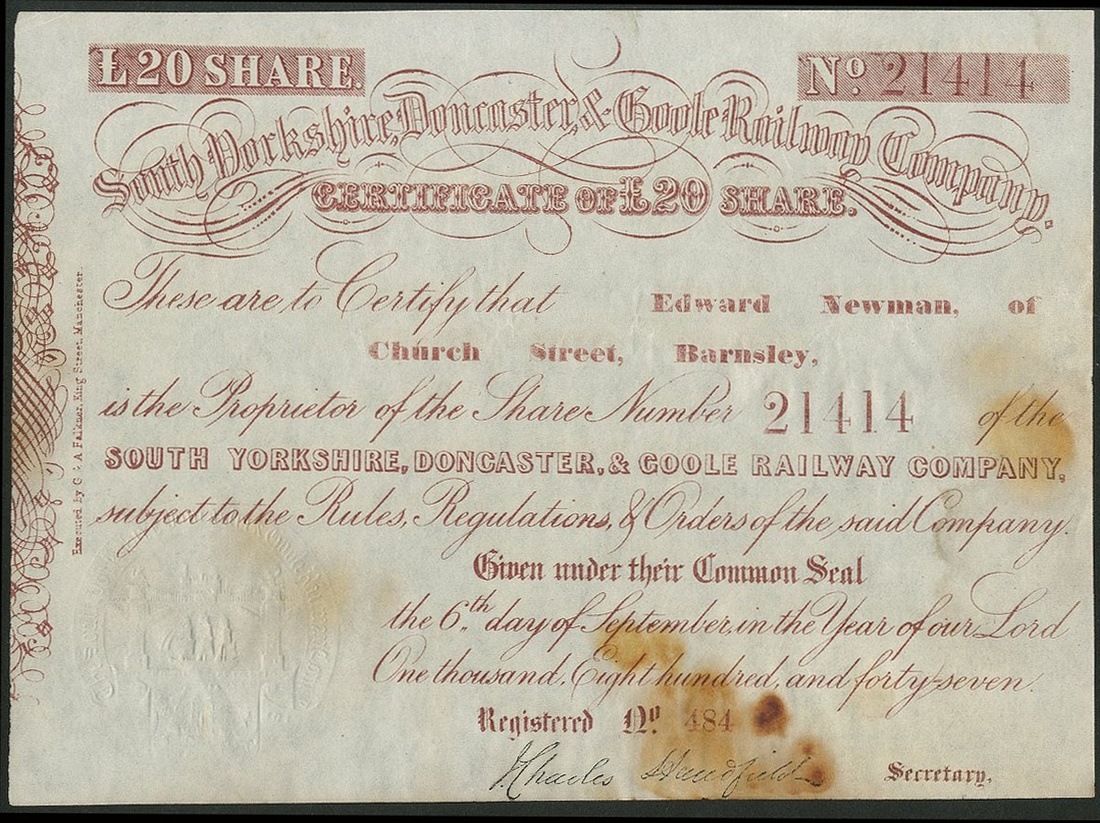 £20 SHARE.
No. 21414
South Yorkshire, Doncaster, & Goole Railway Company.
CERTIFICATE OF £20 SHARE.
These are to Certify that Edward Newman, of
Church Street, Barnsley,
is the Proprietor of the Share Number 21414 of the
SOUTH YORKSHIRE, DONCASTER, & GOOLE RAILWAY COMPANY,
subject to the Rules, Regulations, & Orders of the said Company.
Given under their Common Seal
the 6th day of September, in the Year of our Lord
One thousand, Eight hundred, and forty-seven.
Registered No. 484
Charles
Secretary.
Executed by G & A Falkner, King Street, Manchester